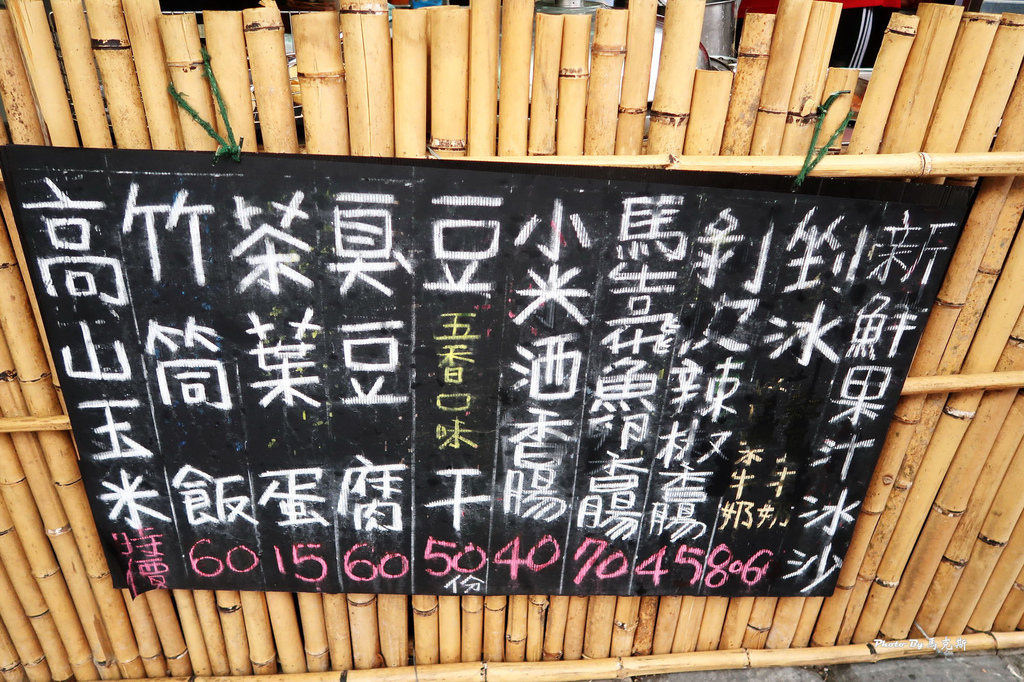 高山玉米 特價
竹筒飯 60
茶葉蛋 15
臭豆腐 60
豆干 五香口味 50份
小米酒香腸 40
馬告飛魚卵香腸 70
剝皮辣椒香腸 45
剉冰 80
牛奶
新鮮果汁冰沙
Photo By 馬克斯